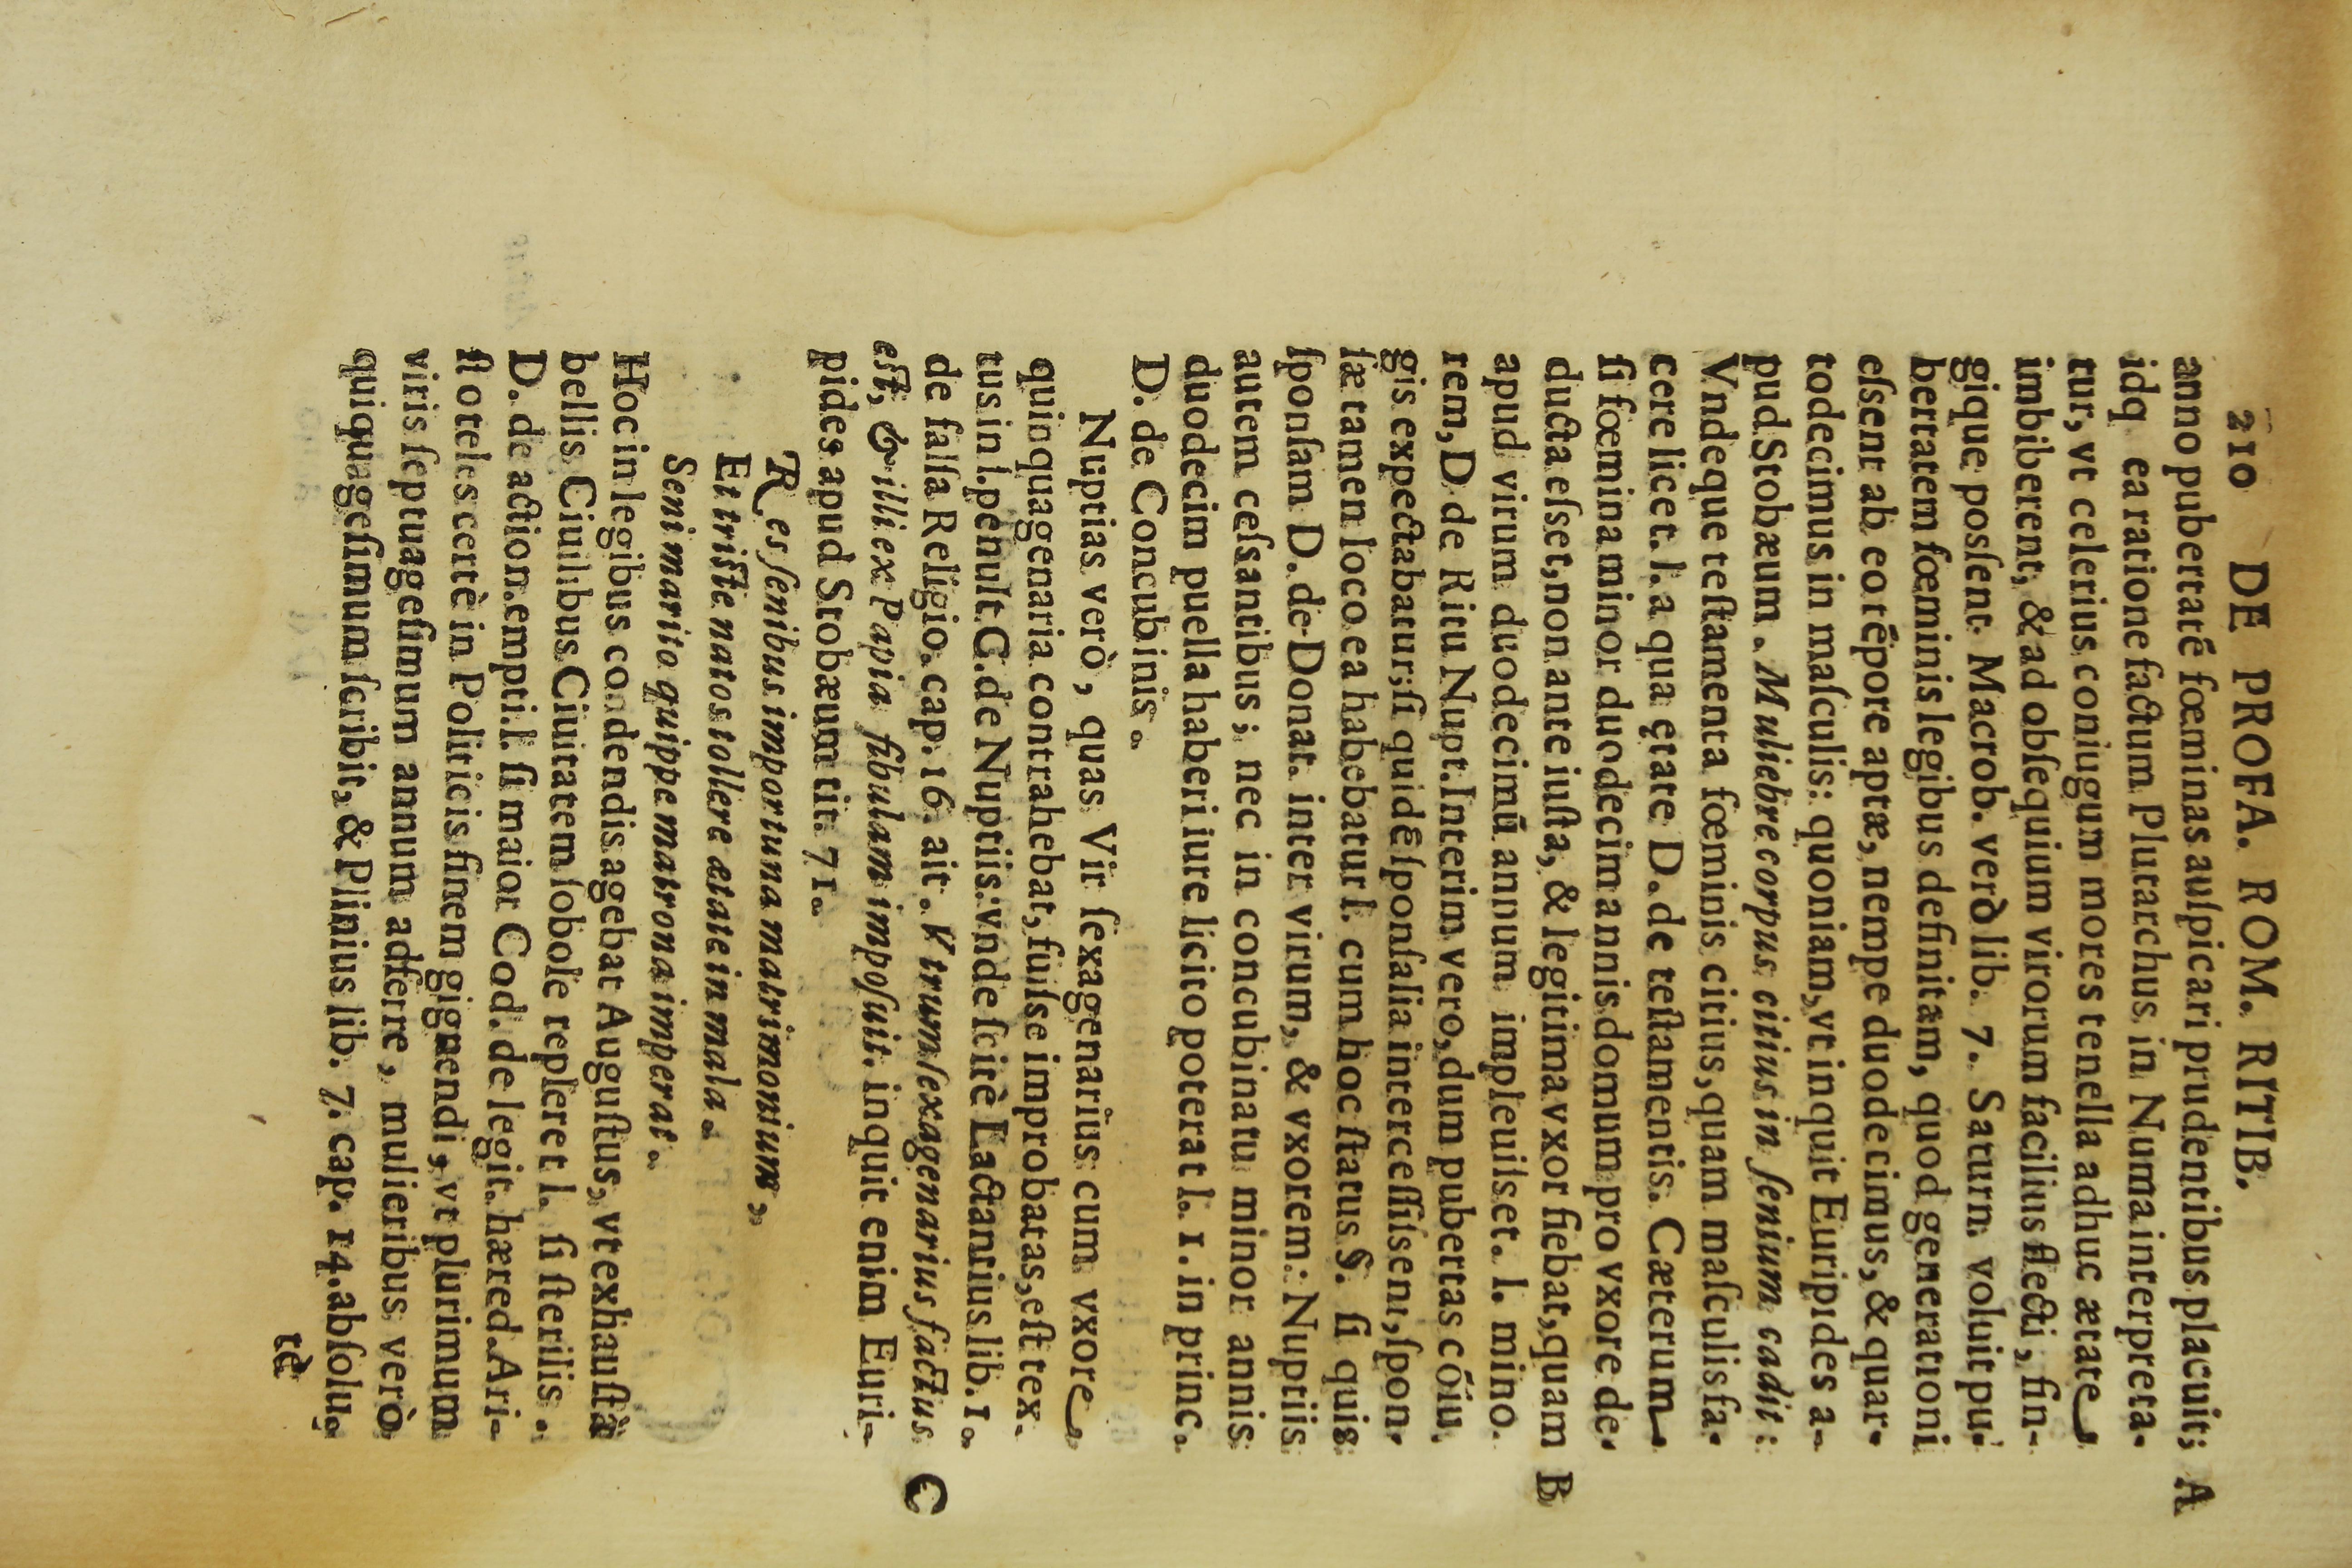 210 DE PROFA. ROM. RITIB.
anno pubertatē fœminas auſpicari prudentibus placuit; A
idq ea ratione factum Plutarchus in Numa interpreta-
tur, vt celerius coniugum mores tenella adhuc ætate
imbiberent, & ad obſequium virorum facilius flecti, fin-
gique poſsent. Macrob. verò lib. 7. Saturn. voluit pu-
bertatem fœminis legibus definitam, quod generationi
eſsent ab eo tēpore aptæ, nempe duodecimus, & quar-
todecimus in maſculis: quoniam, vt inquit Euripides a-
pud Stobæum. Muliebre corpus citius in ſenium cadit:
Vndeque teſtamenta fœminis citius, quam maſculis fa-
cere licet. l. a qua ętate D. de teſtamentis. Cæterum
ſi fœmina minor duodecim annis domum pro vxore de-
ducta eſset, non ante iuſta, & legitima vxor fiebat, quam B
apud virum duodecimū annum impleuiſset. l. mino.
rem, D. de Ritu Nupt. Interim vero, dum pubertas cōiu
gis expectabatur; ſi quidē ſponſalia interceſſiſsent, ſpon-
ſæ tamen loco ea habebatur l. cum hoc ſtatus §. ſi quis
ſponſam D. de Donat. inter virum, & vxorem: Nuptiis
autem ceſsantibus; nec in concubinatu minor annis
duodecim puella haberi iure licito poterat l. 1. in princ.
D. de Concubinis.
Nuptias verò, quas Vir ſexagenarius cum vxore
quinquagenaria contrahebat, fuiſse improbatas, eſt tex-
tus in l. penult C. de Nuptiis: vnde ſcitè Lactantius lib. 1.
de falſa Religio. cap. 16. ait. Vtrum ſexagenarius factus
est, & illi ex Papia fibulam impoſuit. inquit enim Euri- C
pides apud Stobæum tit. 71.
Res ſenibus importuna matrimonium,
Et triſte natos tollere ætate in mala.
Seni marito quippe matrona imperat.
Hoc in legibus condendis agebat Auguſtus, vt exhauſtà
bellis Ciuilibus Ciuitatem ſobole repleret l. ſi ſterilis.
D. de action. empti. l. ſi maior Cod. de legit. hæred. Ari-
ſtoteles certè in Politicis finem gignendi, vt plurimum
viris ſeptuageſimum annum adferre, mulieribus verò
quiquageſimum ſcribit, & Plinius lib. 7. cap. 14. abſolu-
tè